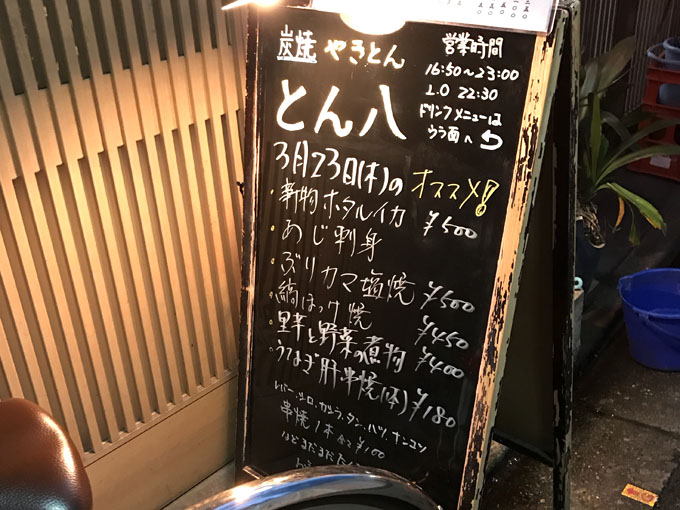 炭焼 やきとん
とん八
営業時間
16:50～23:00
L.O 22:30
ドリンクメニューは
ウラ面へ
3月23日(木)のオススメ!
・新物ホタルイカ ¥500
・あじ刺身
・ぶりカマ塩焼 ¥500
・縞ほっけ焼 ¥450
・里芋と野菜の煮物 ¥400
・うなぎ肝串焼(1本) ¥180
レバー、シロ、カシラ、タン、ハツ、ナンコツ
串焼1本 各¥100
ほどまだまだ